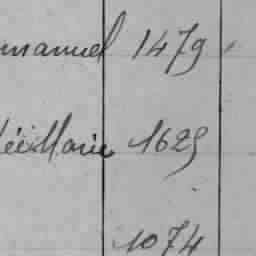 manuel 1479
Marie 1625
1074